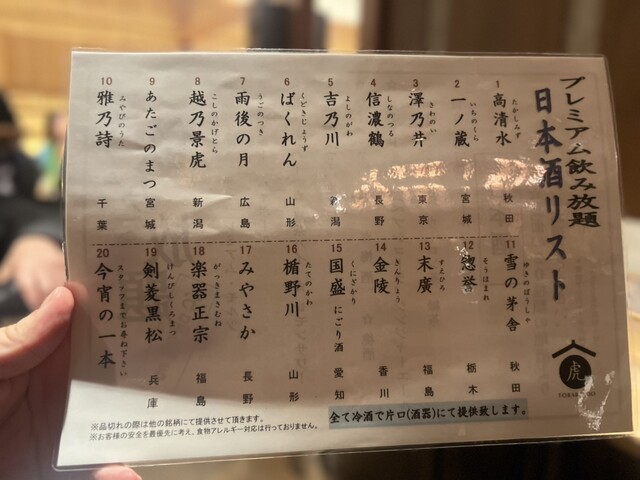 プレミアム飲み放題
日本酒リスト
1 高清水 たかしみず 秋田
2 一ノ蔵 いちのくら 宮城
3 澤乃井 さわのい 東京
4 信濃鶴 しなのつる 長野
5 吉乃川 よしのがわ 新潟
6 ばくれん くどきじょうず 山形
7 雨後の月 うごのつき 広島
8 越乃景虎 こしのかげとら 新潟
9 あたごのまつ 宮城
10 雅乃詩 みやびのうた 千葉
11 雪の茅舎 ゆきのぼうしゃ 秋田
12 惣誉 そうほまれ 栃木
13 末廣 すえひろ 福島
14 金陵 きんりょう 香川
15 国盛 にごり酒 くにざかり 愛知
16 楯野川 たてのかわ 山形
17 みやさか 長野
18 楽器正宗 がっきまさむね 福島
19 剣菱黒松 けんびしくろまつ 兵庫
20 今宵の一本 スタッフまでお尋ね下さい
虎
全て冷酒で片口(酒器)にて提供致します。
※品切れの際は他の銘柄にて提供させて頂きます。
※お客様の安全を最優先に考え、食物アレルギー対応は行っておりません。